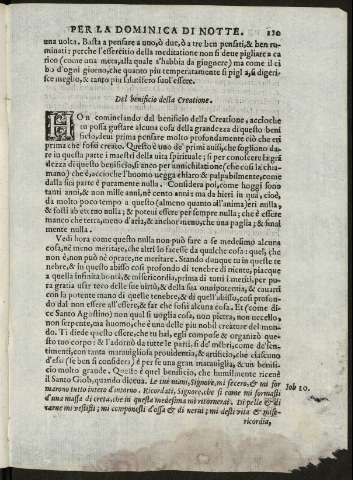 PER LA DOMINICA DI NOTTE. 210
una uolta. Basta a pensare a uno, ò due, ò a tre ben pensati, & ben ru
minati: perche l'essercitio della meditatione non si deue pigliare a ca
rico (come una meta, alla quale s'habbia da giugnere) ma come il ci
bo d'ogni giorno, che quanto piu temperatamente si piglia, si digeri-
sce meglio, & tanto piu salutifero suol'essere.
Del benificio della Creatione.
HOr cominciando dal benificio della Creatione, accioche
tu possa gustare alcuna cosa della grandezza di questo beni
ficio, deui prima pensare molto profondamente ciò che eri
prima che fossi creato. Questo è uno de' primi auisi, che sogliono da
re in questa parte i maestri della uita spirituale; si per conoscere la grā
dezza di questo beneficio, si anco per annichilatione (che così la chia
mano) che è, accioche l'huomo uegga chiaro & palpabilmente, come
dalla sua parte è puramente nulla. Considera poi, come hoggi sono
tanti anni, & non mille anni, nè cento anni: ma da hieri in quà, cioè,
da molto poco tempo a questo (almeno quanto all'anima) eri nulla,
& fosti ab eterno nulla; & poteui essere per sempre nulla; che è essere
manco che terra, meno d'aria, & anchor meno, che una paglia; & final
mente nulla.
Vedi hora come questo nulla non può fare a se medesimo alcuna
cosa, nè meno meritare, che altri lo faccesse da qualche cosa: quel, che
non è, non può nè oprare, ne meritare. Stando dunque tu in quelle te
nebre, & in questo abisso così profondo di tenebre di niente, piacque
a quella infinita bontà, & misericordia, prima di tutti i meriti, per pu-
ra gratia usar teco delle sue uirtù, & della sua onnipotentia, & cauarti
con la potente mano di quelle tenebre, & di quell'abisso, così profon-
do dal non essere all'essere, & far che fosse alcuna cosa. Et (come di-
ce Santo Agostino) non qual si uoglia cosa, non pietra, non uccello,
non serpente, ma huomo, che è una delle piu nobil creature del mon-
do. Ti diede questo essere, che tu hai, egli compose & organizò que-
sto tuo corpo: & l'adornò da tutte le parti, sì de' mēbri, come de' sen-
timenti, con tanta marauigliosa prouidentia, & artificio, che ciascuno
d'essi (se ben si considera) è per se una gran marauiglia, & un benefi-
cio molto grande. Questo è quel benificio, che humilmente ricenè
il Santo Giob, quando diceua. Le tue mani, Signore, mi fecero, & mi for Iob 10.
marono tutto intero d'intorno. Ricordati, Signore, che si come mi formasti
d'una massa di creta, che in questa medesima mi ritornerai. Di pelle & di
carne mi vestisti: mi componesti d'ossa & di nerui; mi desti vita & mise-
ricordia,